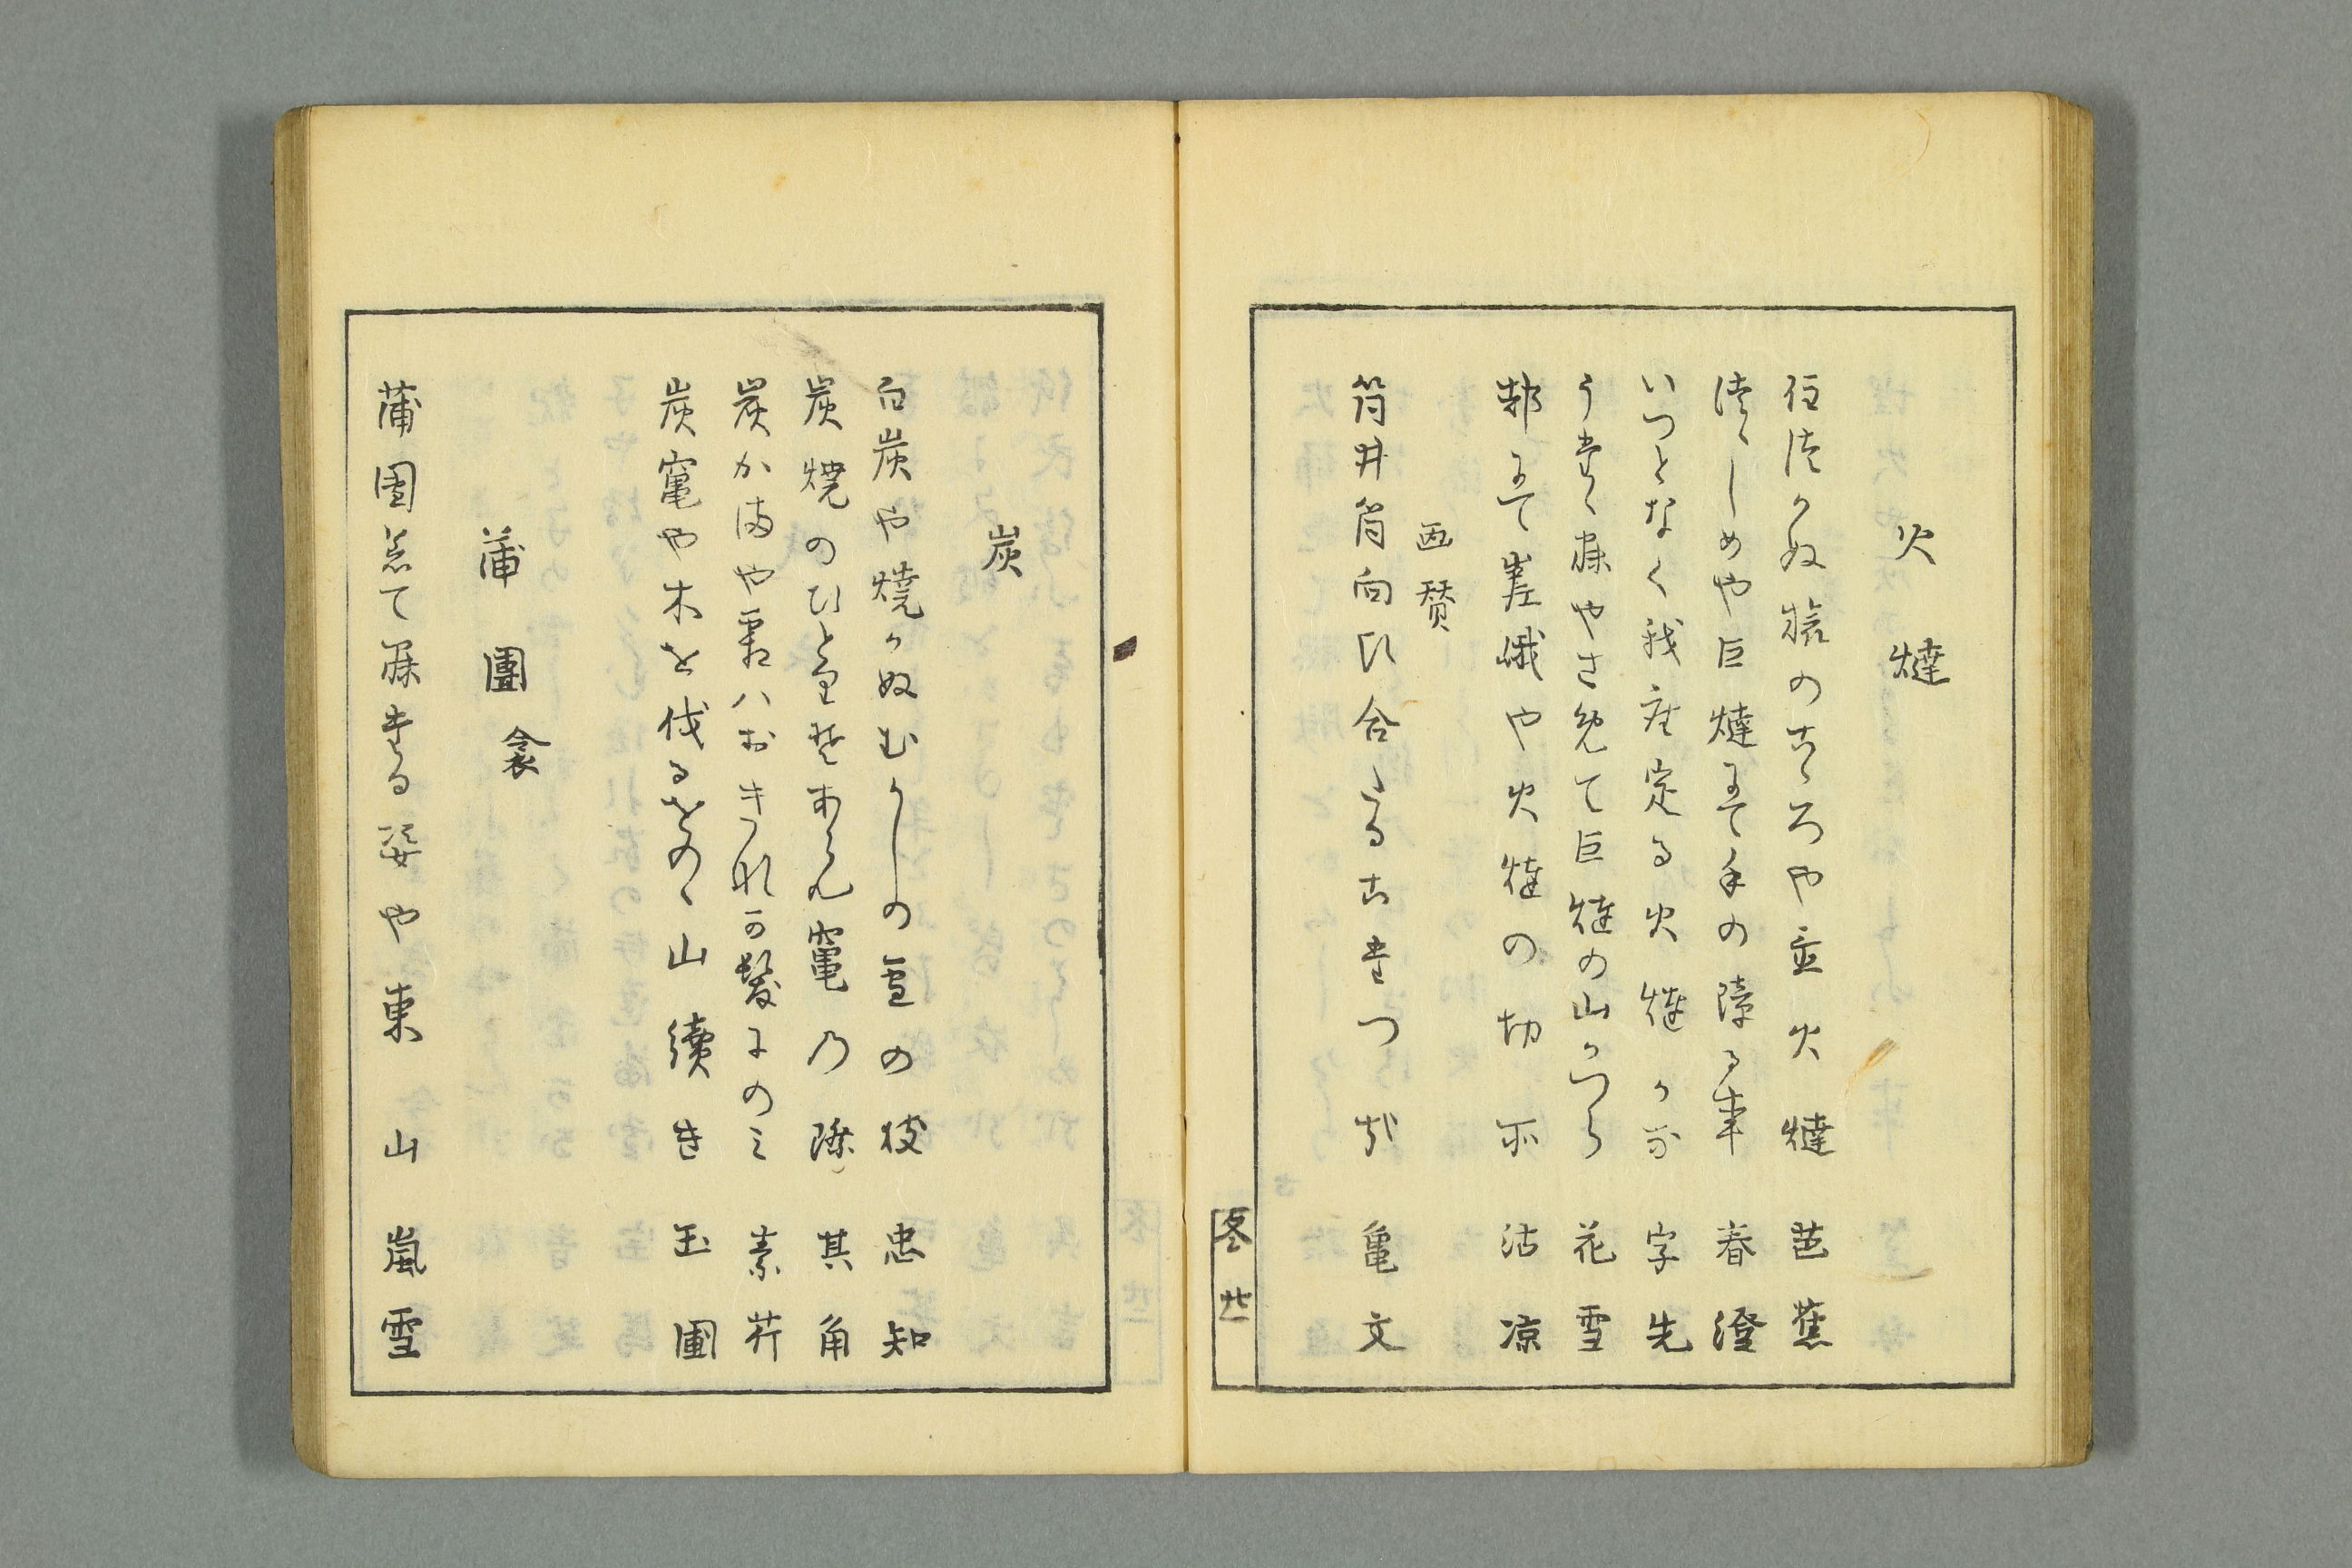 火燵
住つかぬ旅のこゝろや置火燵 芭蕉
つゝしめや巨燵にて手の障る事 春澄
いつとなく我座定る火燵かな 字先
うたゝ寐やさめて巨燵の山かつら 花雪
にて嵯峨や火燵の切所 沾凉
画賛
筒井筒向ひ合たるこたつかな 亀文
冬 廿一
炭
白炭や焼かぬむかしの雪の枝 忠知
炭焼のひとり竈の際 其角
炭かまや霜ハおきつれ髪にのミ 素芹
炭竃や木を伐るをのゝ山續き 玉圃
蒲團 衾
蒲團着て寐たる姿や東山 嵐雪